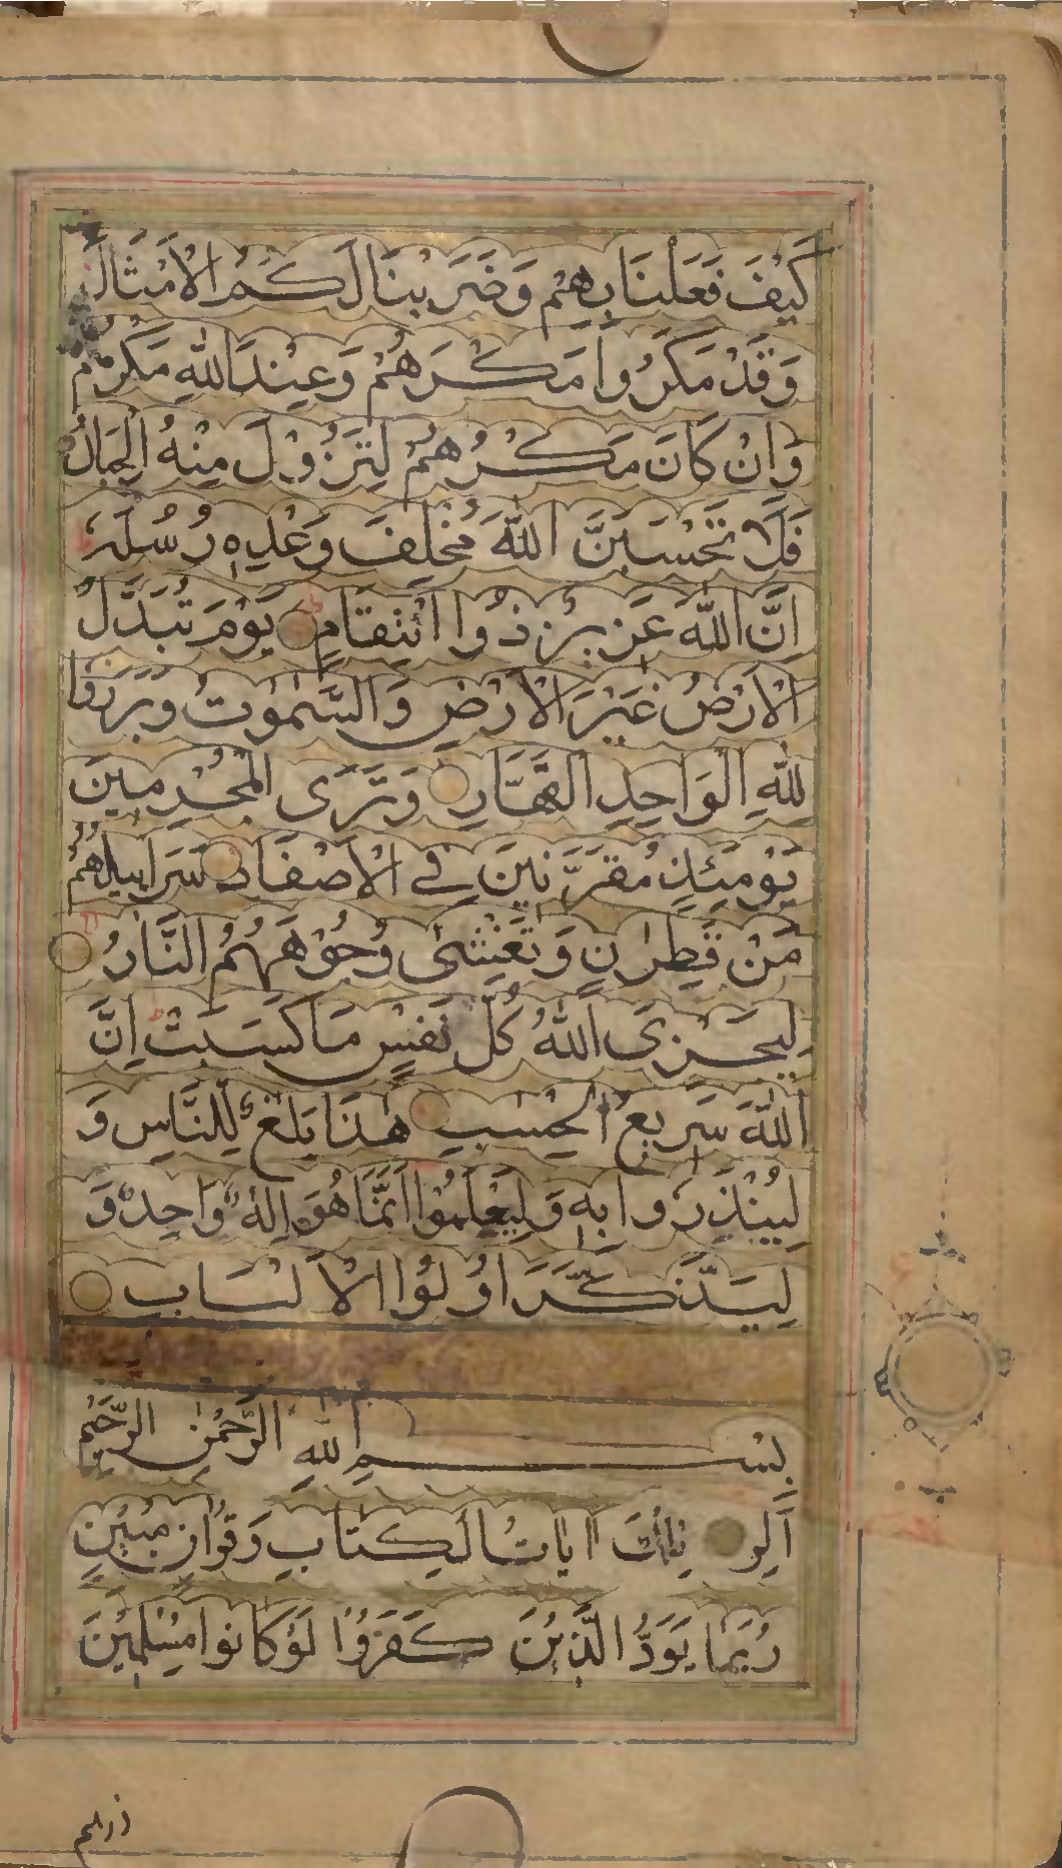 كَيْفَ فَعَلْنَا بِهِمْ وَضَرَبْنَا لَكُمُ الْاَمْثَالَ
وَقَدْ مَكَرُوا مَكْرَهُمْ وَعِنْدَ اللّٰهِ مَكْرُهُمْ
وَاِنْ كَانَ مَكْرُهُمْ لِتَزُوْلَ مِنْهُ الْجِبَالُ
فَلَا تَحْسَبَنَّ اللّٰهَ مُخْلِفَ وَعْدِهٖ رُسُلَهٗ
اِنَّ اللّٰهَ عَزِيْزٌ ذُوا انْتِقَامٍ يَوْمَ تُبَدَّلُ
الْاَرْضُ غَيْرَ الْاَرْضِ وَالسَّمٰوٰتُ وَبَرَزُوا
لِلّٰهِ الْوَاحِدِ الْقَهَّارِ وَتَرَى الْمُجْرِمِينَ
يَوْمَئِذٍ مُقَرَّنِينَ فِي الْاَصْفَادِ سَرَابِيلُهُمْ
مِنْ قَطِرَانٍ وَتَغْشٰى وُجُوْهَهُمُ النَّارُ
لِيَجْزِىَ اللّٰهُ كُلَّ نَفْسٍ مَا كَسَبَتْ اِنَّ
اللّٰهَ سَرِيعُ الْحِسٰبِ هٰذَا بَلٰغٌ لِلنَّاسِ وَ
لِيُنْذَرُوا بِهٖ وَلِيَعْلَمُوا اَنَّمَا هُوَ اِلٰهٌ وَاحِدٌ وَ
لِيَذَّكَّرَ اُولُوا الْاَلْبَابِ
بِسْمِ اللّٰهِ الرَّحْمٰنِ الرَّحِيْمِ
الٓرٰ تِلْكَ اٰيَاتُ الْكِتَابِ وَقُرْاٰنٍ مُبِيْنٍ
رُبَمَا يَوَدُّ الَّذِيْنَ كَفَرُوْا لَوْ كَانُوا مُسْلِمِيْنَ